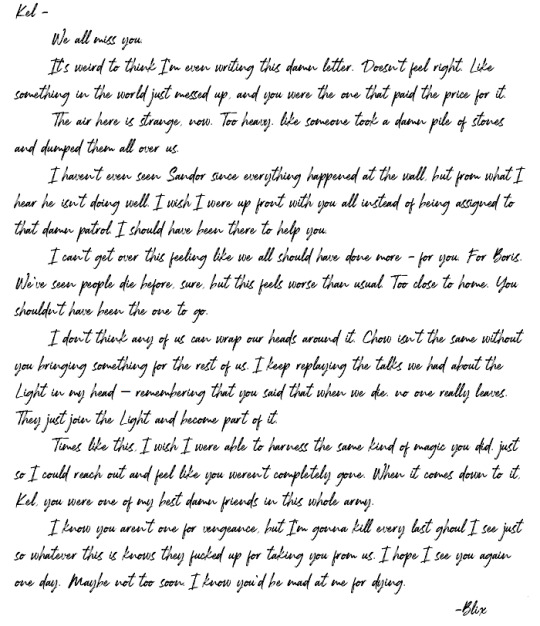 Kel -
We all miss you.
It's weird to think I'm even writing this damn letter. Doesn't feel right. Like
something in the world just messed up, and you were the one that paid the price for it.
The air here is strange, now. Too heavy, like someone took a damn pile of stones
and dumped them all over us.
I haven't even seen Sandor since everything happened at the wall, but from what I
hear he isn't doing well. I wish I were up front with you all instead of being assigned to
that damn patrol. I should have been there to help you.
I can't get over this feeling like we all should have done more - for you. For Boris.
We've seen people die before, sure, but this feels worse than usual. Too close to home. You
shouldn't have been the one to go.
I don't think any of us can wrap our heads around it. Chow isn't the same without
you bringing something for the rest of us. I keep replaying the talks we had about the
Light in my head – remembering that you said that when we die, no one really leaves.
They just join the Light and become part of it.
Times like this, I wish I were able to harness the same kind of magic you did, just
so I could reach out and feel like you weren't completely gone. When it comes down to it,
Kel, you were one of my best damn friends in this whole army.
I know you aren't one for vengeance, but I'm gonna kill every last ghoul I see just
so whatever this is knows they fucked up for taking you from us. I hope I see you again
one day. Maybe not too soon. I know you'd be mad at me for dying.
-Blix